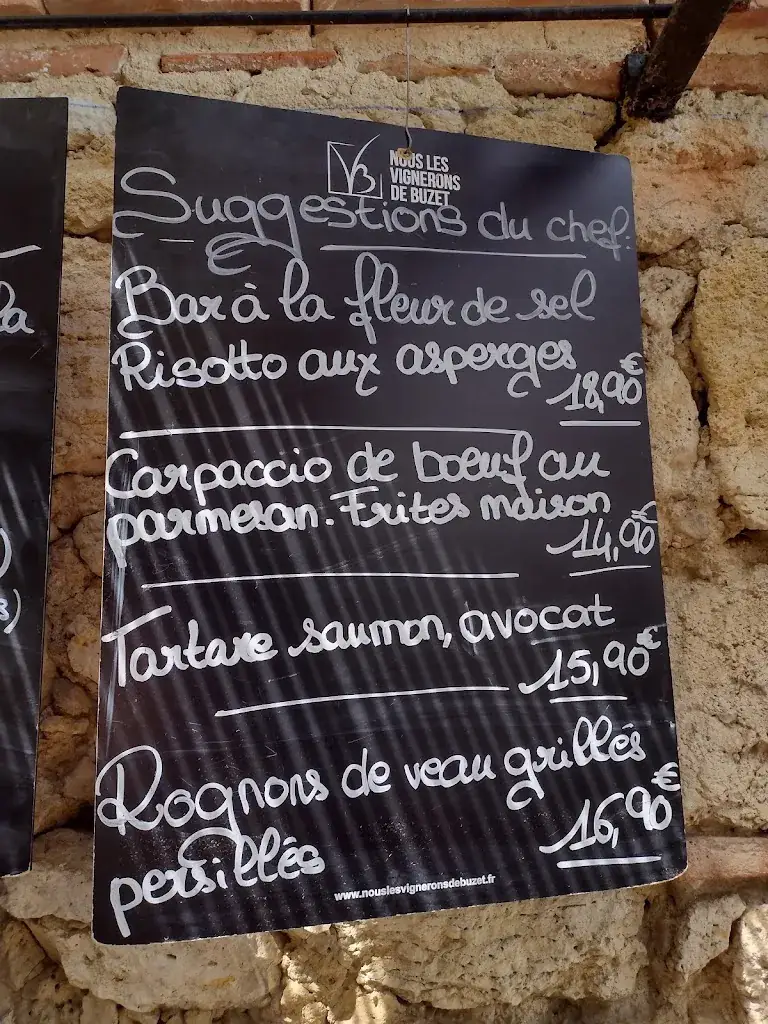 NOUS LES
VIGNERONS
DE BUZET
Suggestions du chef:
Bar à la fleur de sel
Risotto aux asperges
18,90€
Carpaccio de boeuf au
parmesan. Frites maison
14,90€
Tartare saumon, avocat
15,90€
Rognons de veau grillés
persillés
16,90€
www.nouslesvigneronsdebuzet.fr
la